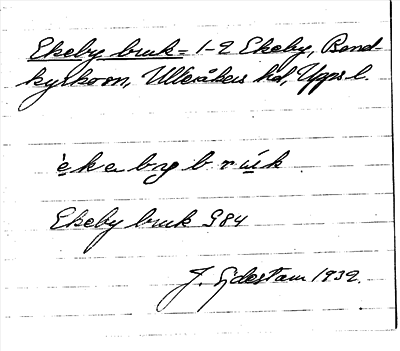 Ekeby bruk = 1-2 Ekeby, Bond-
kyrko sn, Ulleråkers hd, Upps l.
èkabyb rúk
Ekeby bruk G84
J. Sjdestam 1932.